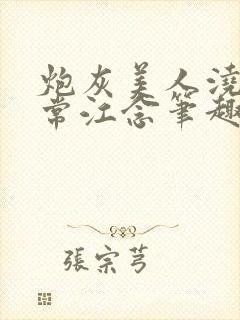 炮灰美人澆
常江念筆趣
張宗芎